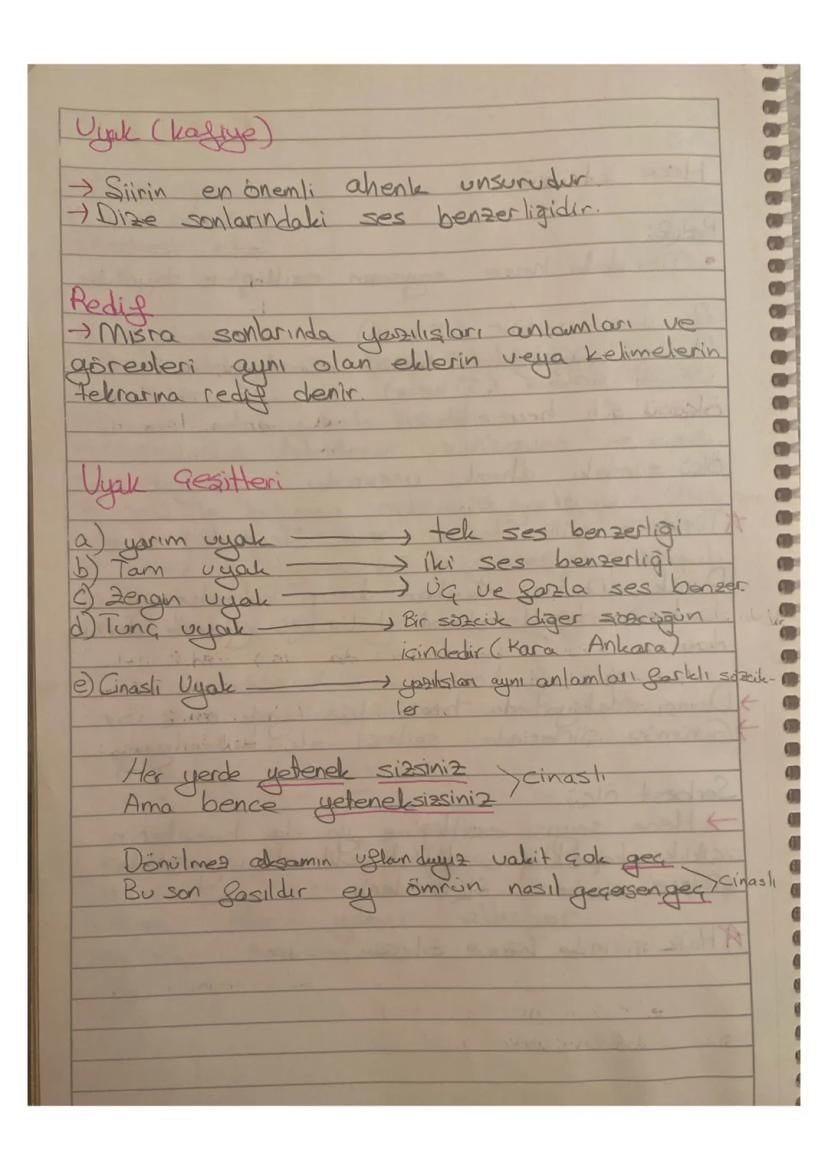 Uyak (kafiye)
→ Şiirin en önemli ahenk unsurudur.
→ Dize sonlarındaki ses benzerliğidir.
Redif
→ Mısra sonlarında yazılışları anlamları ve
görevleri aynı olan eklerin veya kelimelerin
tekrarına redif denir.
Uyak Çeşitleri
a) yarım uyak → tek ses benzerliği
b) Tam uyak → iki ses benzerliği
c) Zengin uyak → üç ve fazla ses benzer.
d) Tunç uyak → Bir sözcük diğer sözcüğün
içindedir (Kara Ankara)
e) Cinaslı Uyak → yazılışları aynı anlamları farklı sözcük-
ler
Her yerde yetenek sizsiniz > cinaslı
Ama bence yeteneksizsiniz
Dönülmez akşamın ufkundayız vakit çok geç > cinaslı
Bu son fasıldır ey ömrün nasıl geçersen geç